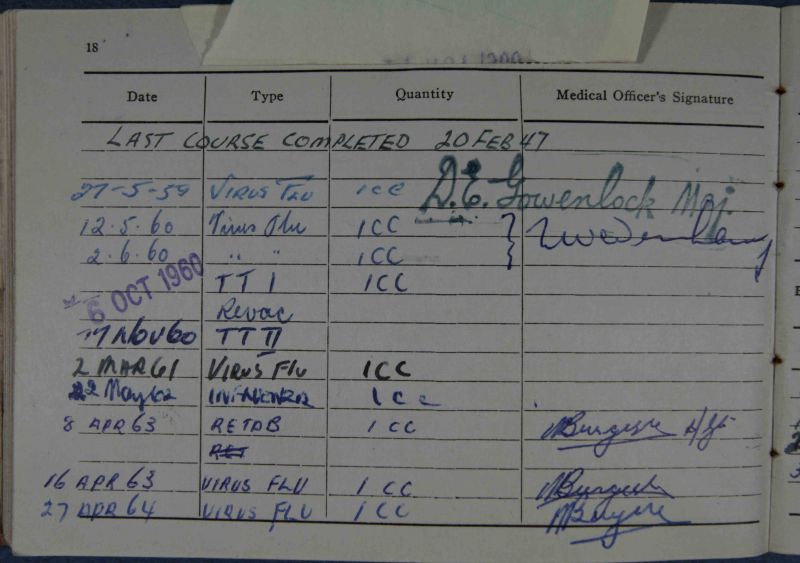 18
Date Type Quantity Medical Officer's Signature
LAST COURSE COMPLETED 20 FEB 47
27-5-59 VIRUS FLU 1CC D.E. Gowenlock Maj.
12.5.60 Virus Flu 1CC
2.6.60 " " 1CC
6 OCT 1960 TT I 1CC
Revac
17 NOV 60 TT II
2 MAR 61 VIRUS FLU 1CC
22 May 62 INFLUENZA 1CC
8 APR 63 RETAB 1 CC Burgess
RET
16 APR 63 VIRUS FLU 1 CC Burgess
27 APR 64 VIRUS FLU 1 CC